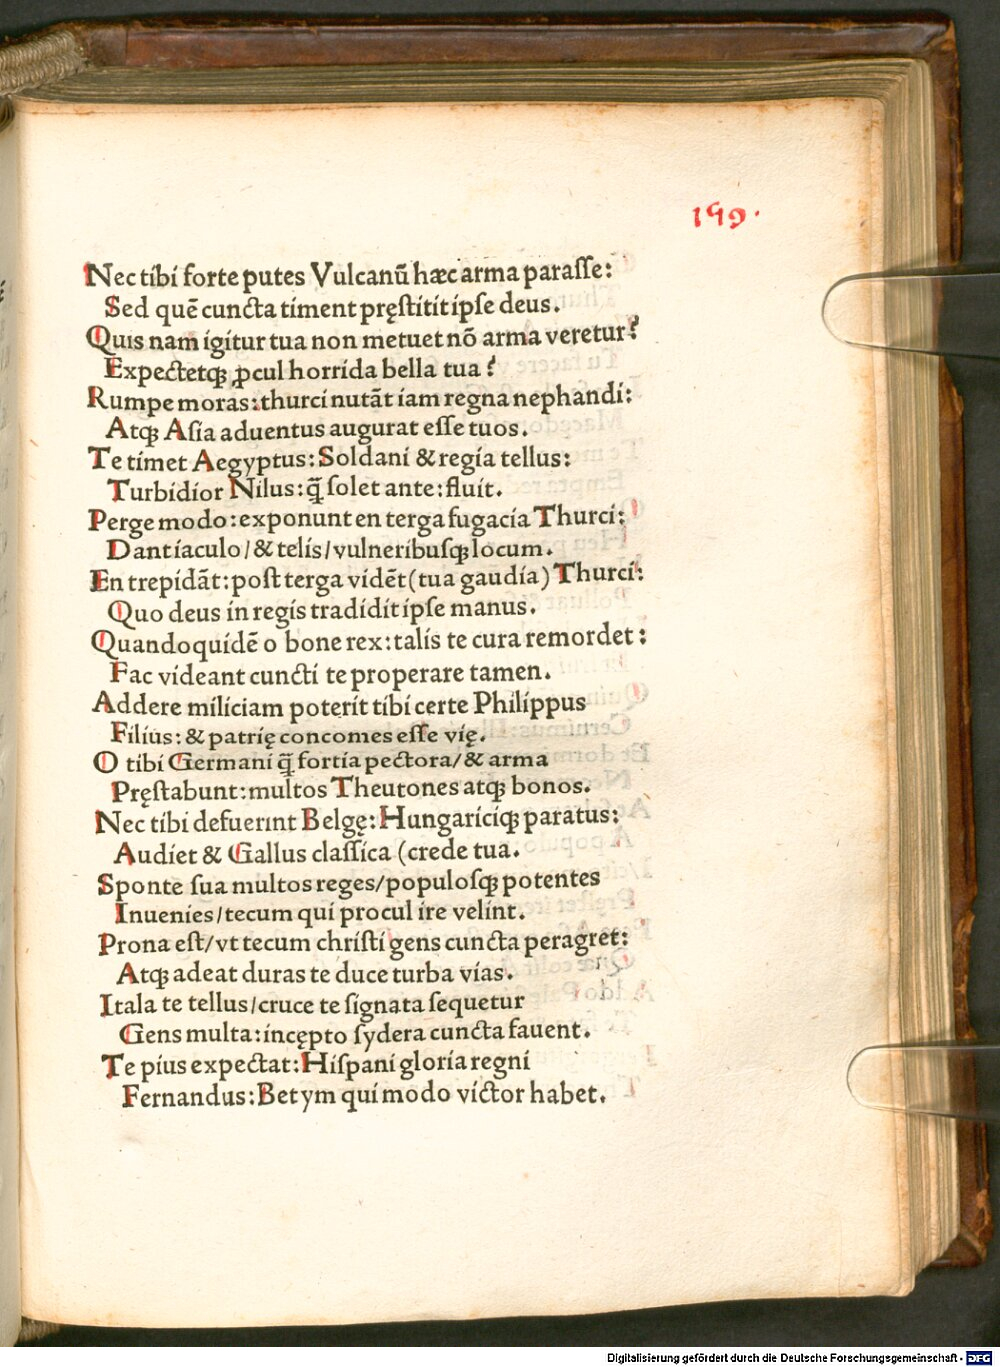 199.
Nec tibi forte putes Vulcanũ hæc arma paraſſe:
Sed quẽ cuncta timent pręſtitit ipſe deus.
Quis nam igitur tua non metuet nõ arma veretur?
Expectetꝗ ꝓcul horrida bella tua?
Rumpe moras: thurci nutãt iam regna nephandi:
Atꝗ Aſia aduentus augurat eſſe tuos.
Te timet Aegyptus: Soldani & regia tellus:
Turbidior Nilus: q̃ ſolet ante: fluit.
Perge modo: exponunt en terga fugacia Thurci:
Dant iaculo/ & telis/ vulneribuſꝗ locum.
En trepidãt: poſt terga vidẽt (tua gaudia) Thurci:
Quo deus in regis tradidit ipſe manus.
Quandoquidẽ o bone rex: talis te cura remordet:
Fac videant cuncti te properare tamen.
Addere miliciam poterit tibi certe Philippus
Filius: & patrię concomes eſſe vię.
O tibi Germani q̃ fortia pectora/ & arma
Pręſtabunt: multos Theutones atꝗ bonos.
Nec tibi defuerint Belgę: Hungariciꝗ paratus:
Audiet & Gallus claſſica (crede tua.
Sponte ſua multos reges/ populoſꝗ potentes
Inuenies/ tecum qui procul ire velint.
Prona eſt/ vt tecum chriſti gens cuncta peragret:
Atꝗ adeat duras te duce turba vias.
Itala te tellus/ cruce te ſignata ſequetur
Gens multa: incępto ſydera cuncta fauent.
Te pius expectat: Hiſpani gloria regni
Fernandus: Betym qui modo victor habet.
Digitalisierung gefördert durch die Deutsche Forschungsgemeinschaft - DFG